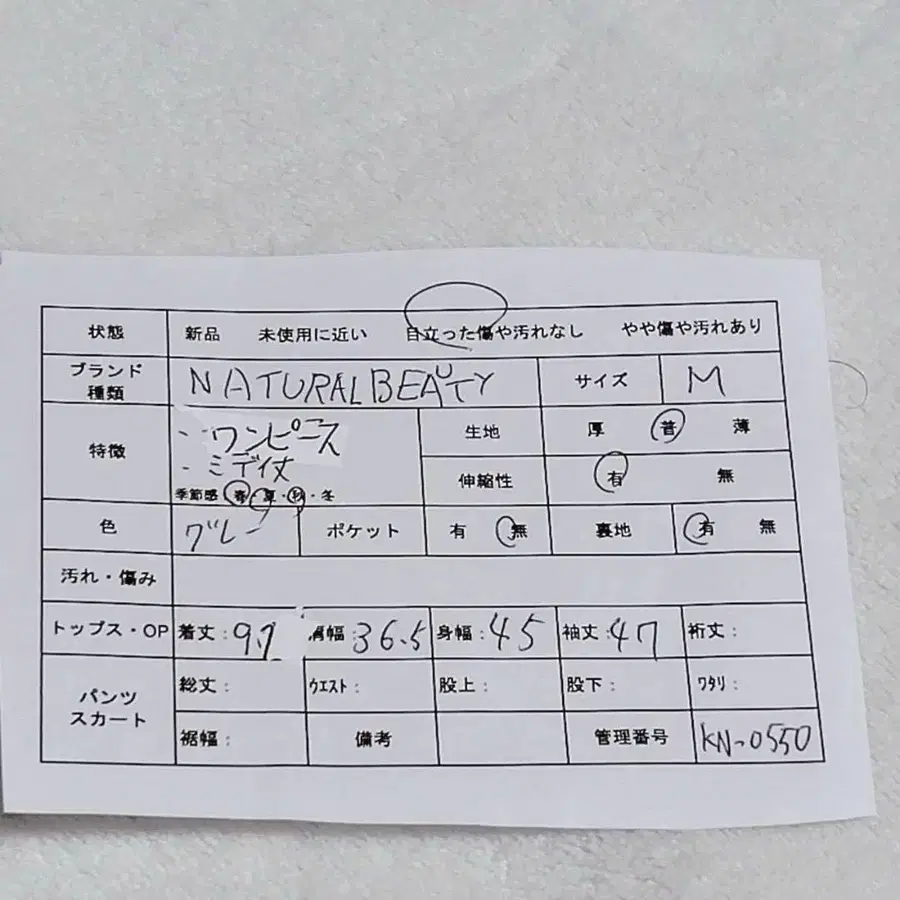 状態 新品 未使用に近い 目立った傷や汚れなし やや傷や汚れあり
ブランド 種類 NATURAL BEAUTY サイズ M
特徴 ・ワンピース 生地 厚 普 薄
・ミディ丈 伸縮性 有 無
季節感 春・夏・秋・冬
色 グレー ポケット 有 無 裏地 有 無
汚れ・傷み
トップス・OP 着丈：97 肩幅：36.5 身幅：45 袖丈：47 裄丈：
パンツ スカート 総丈： ウエスト： 股上： 股下： ワタリ：
裾幅： 備考 管理番号 KN-0550